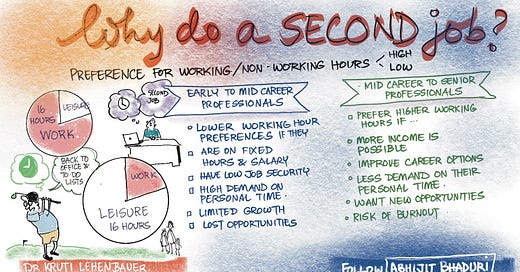 Why do a SECOND job?
PREFERENCE FOR WORKING/NON-WORKING HOURS
HIGH
LOW
16 HOURS
WORK
LEISURE
SECOND JOB
BACK TO OFFICE & TO DO LISTS
WORK
LEISURE
16 HOURS
EARLY TO MID CAREER
PROFESSIONALS
LOWER WORKING HOUR
PREFERENCES IF THEY
ARE ON FIXED
HOURS & SALARY
HAVE LOW JOB SECURITY
HIGH DEMAND ON
PERSONAL TIME.
LIMITED GROWTH
LOST OPPORTUNITIES
MID CAREER TO SENIOR
PROFESSIONALS
PREFER HIGHER WORKING
HOURS IF ...
MORE INCOME IS
POSSIBLE
IMPROVE CAREER OPTIONS
LESS DEMAND ON THEIR
PERSONAL TIME.
WANT NEW OPPORTUNITIES
RISK OF BURNOUT
DR KRUTI LEHENBAUER
FOLLOW ABHIJIT BHADURI